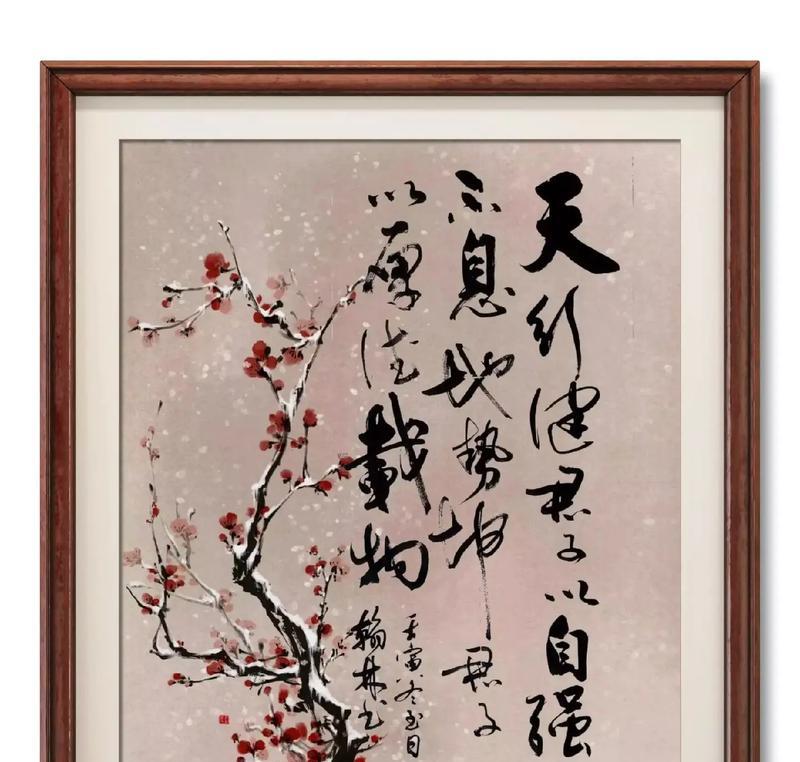 天行健君子以自强
不息地势坤君子
以厚德载物
壬寅冬至日
翰林书